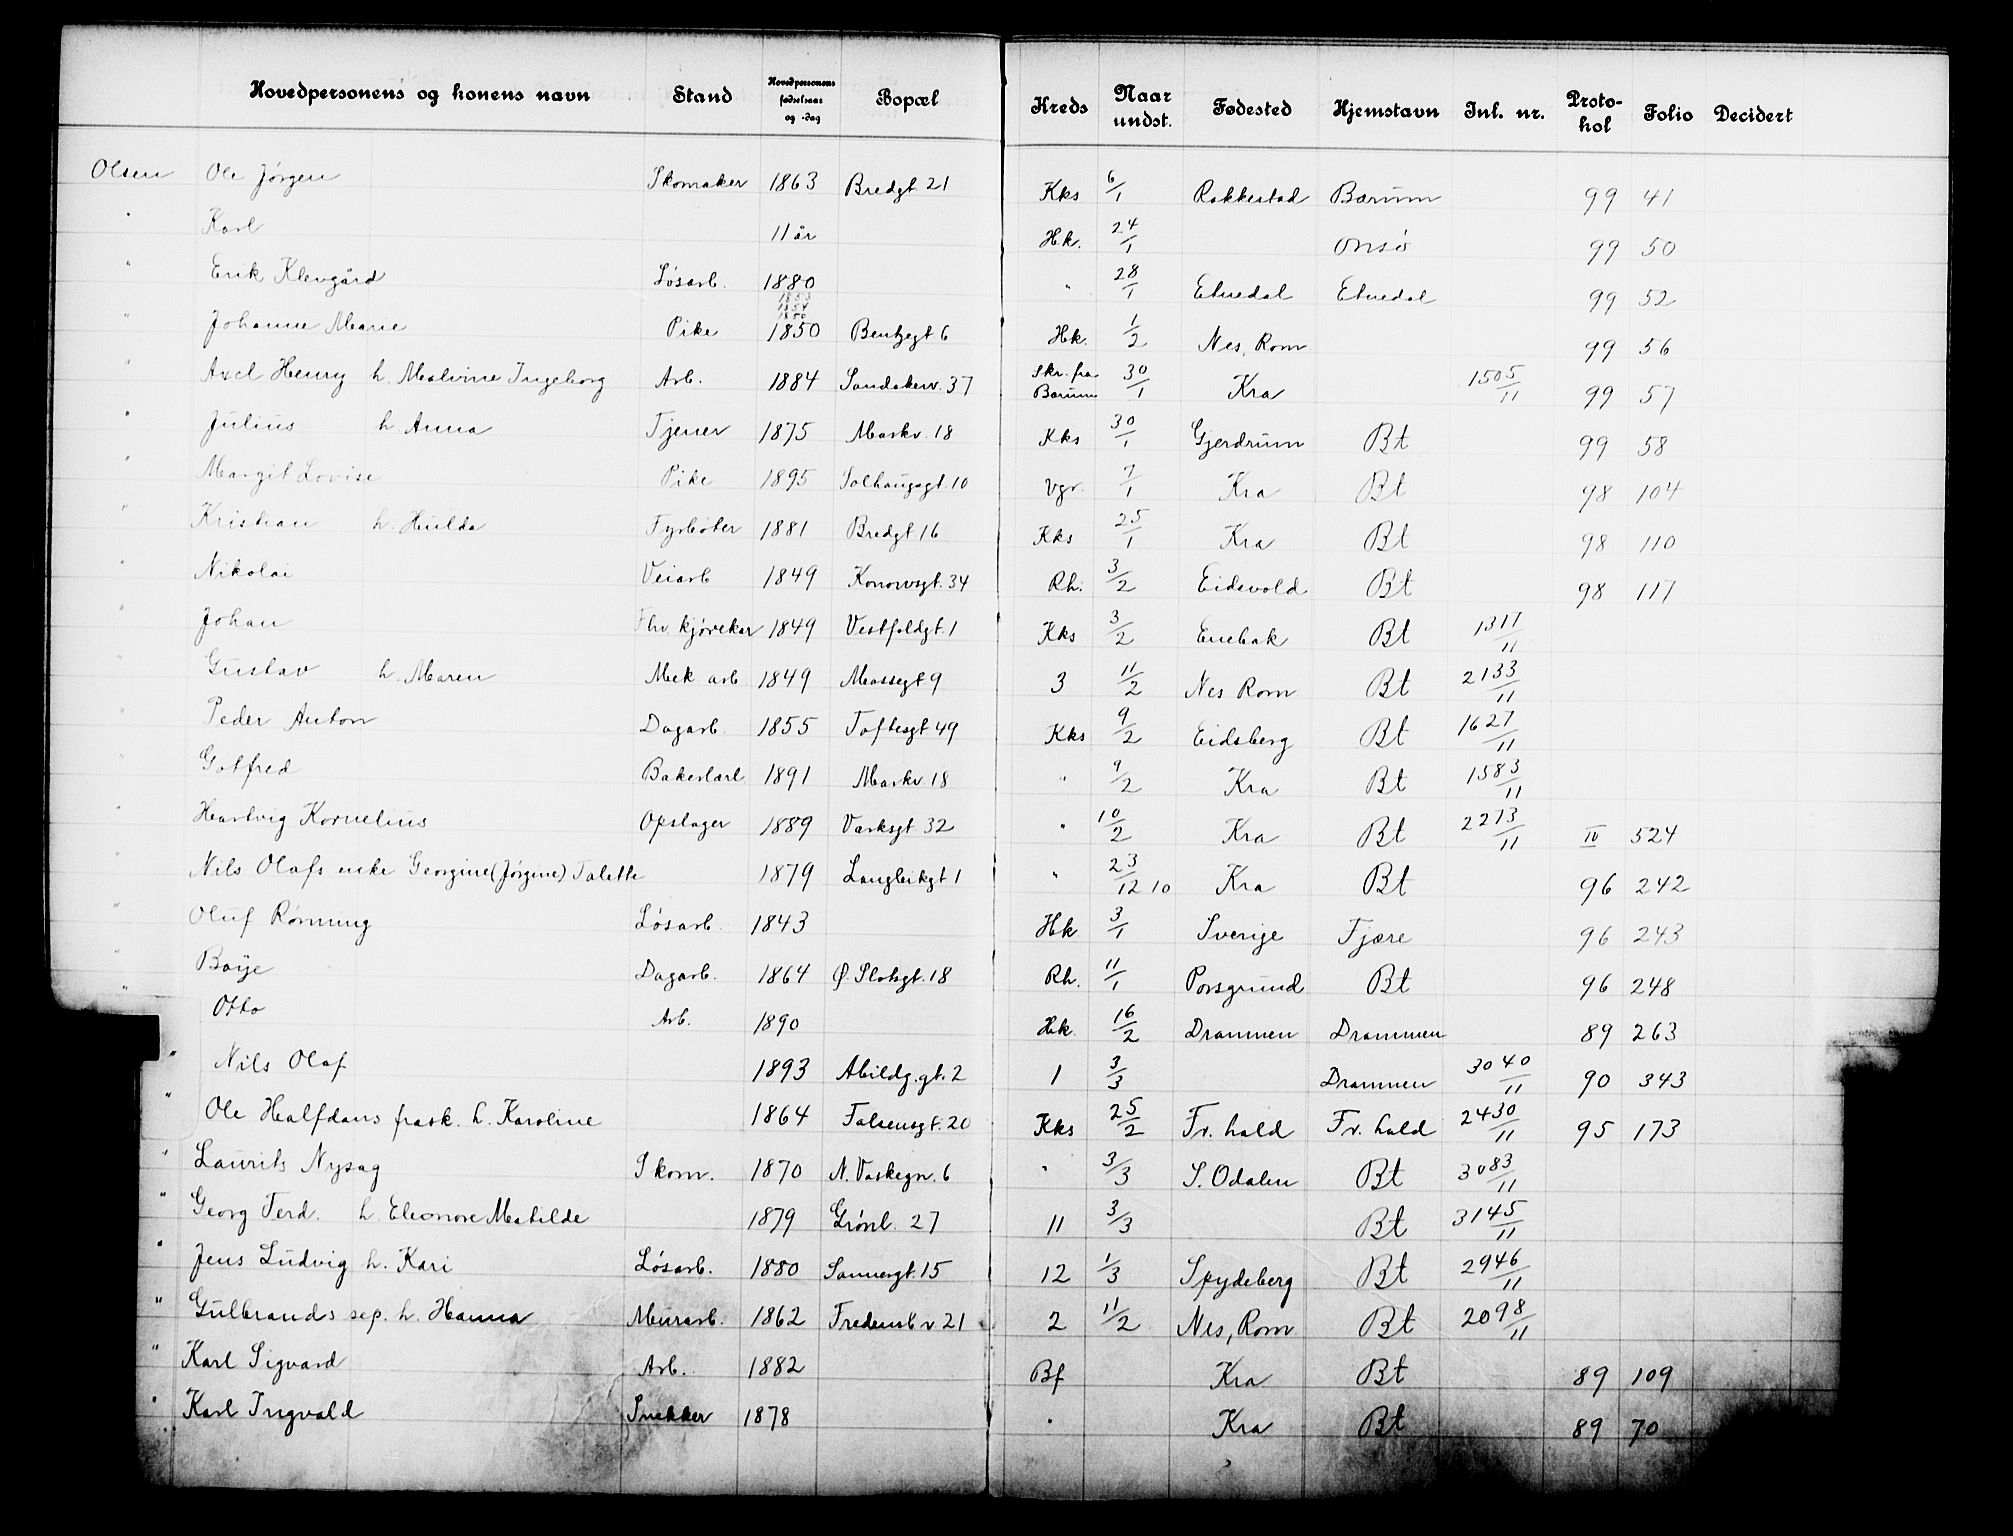 Hovedpersonens og konens navn Stand Hovedpersonens fødselsaar og -dag Bopæl Kreds Naar undst. Fødested Hjemstavn Inl. nr. Protokol Folio Decidert
Olsen Ole Jørgen Skomaker 1863 Bredgt 21 Kks 6/1 Rakkestad Bærum 99 41
" Karl 11 år Hk. 24/1 Onsø 99 50
" Erik Klevgård Løsarb. 1880 " 28/1 Etnedal Etnedal 99 52
" Johanne Marie Pike 1850 Bentzegt 6 Hk. 1/2 Nes, Rom 99 56
" Axel Henry h. Malvine Ingeborg Arb. 1884 Sandakerv. 37 Skr. fra Bærum 30/1 Kra 1505/11 99 57
" Julius h Anna Tjener 1875 Markv. 18 Kks 30/1 Gjerdrum Bt 99 58
" Margit Lovise Pike 1895 Solhaugsgt. 10 Vgr. 7/1 Kra Bt 98 104
" Kristian h. Hulda Fyrbøter 1881 Bredgt. 16 Kks 25/1 Kra Bt 98 110
" Nikolai Veiarb 1849 Konowsgt. 34 Rh. 3/2 Eidsvold Bt 98 117
" Johan Fhv. kjørekar 1849 Vestfoldgt. 1 Kks 3/2 Enebak Bt 1317/11
" Gustav h. Maren Mek arb 1849 Mossegt. 9 3 11/2 Nes Rom Bt 2133/11
" Peder Anton Dagarb. 1855 Toftesgt 49 Kks 9/2 Eidsberg Bt 1627/11
" Gotfred Bakerlærl. 1891 Markv. 18 " 9/2 Kra Bt 1583/11
" Hartvig Kornelius Opslager 1889 Værksgt 32 " 10/2 Kra Bt 2273/11 IV 524
" Nils Olafs enke Georgine (Jørgine) Talette 1879 Langleikgt 1 " 23/12 10 Kra Bt 96 242
" Oluf Rønning Løsarb. 1843 Hk 3/1 Sverige Fjære 96 243
" Boye Dagarb. 1864 Ø. Slotsgt. 18 Rh. 11/1 Porsgrund Bt 96 248
" Otto Arb. 1890 Hk. 16/2 Drammen Drammen 89 263
" Nils Olaf 1893 Abildg.gt. 2 1 3/3 Drammen 3040/11 90 343
" Ole Halfdans frask. h. Karoline 1864 Falsensgt. 20 Kks 25/2 Fr. hald Fr. hald 2430/11 95 173
" Laurits Nysag Skom. 1870 N. Vaskegn. 6 " 3/3 S. Odalen Bt 3083/11
" Georg Ferd. h. Eleonore Matilde 1879 Grønl. 27 11 3/3 Bt 3145/11
" Jens Ludvig h. Kari Løsarb. 1880 Sannergt. 15 12 1/3 Spydeberg Bt 2946/11
" Gulbrands sep. h. Hanna Murarb. 1862 Fredensb v 21 2 11/2 Nes, Rom Bt 2098/11
" Karl Sigvard Arb. 1882 Bf Kra Bt 89 109
" Karl Ingvald Snekker 1878 " Kra Bt 89 70